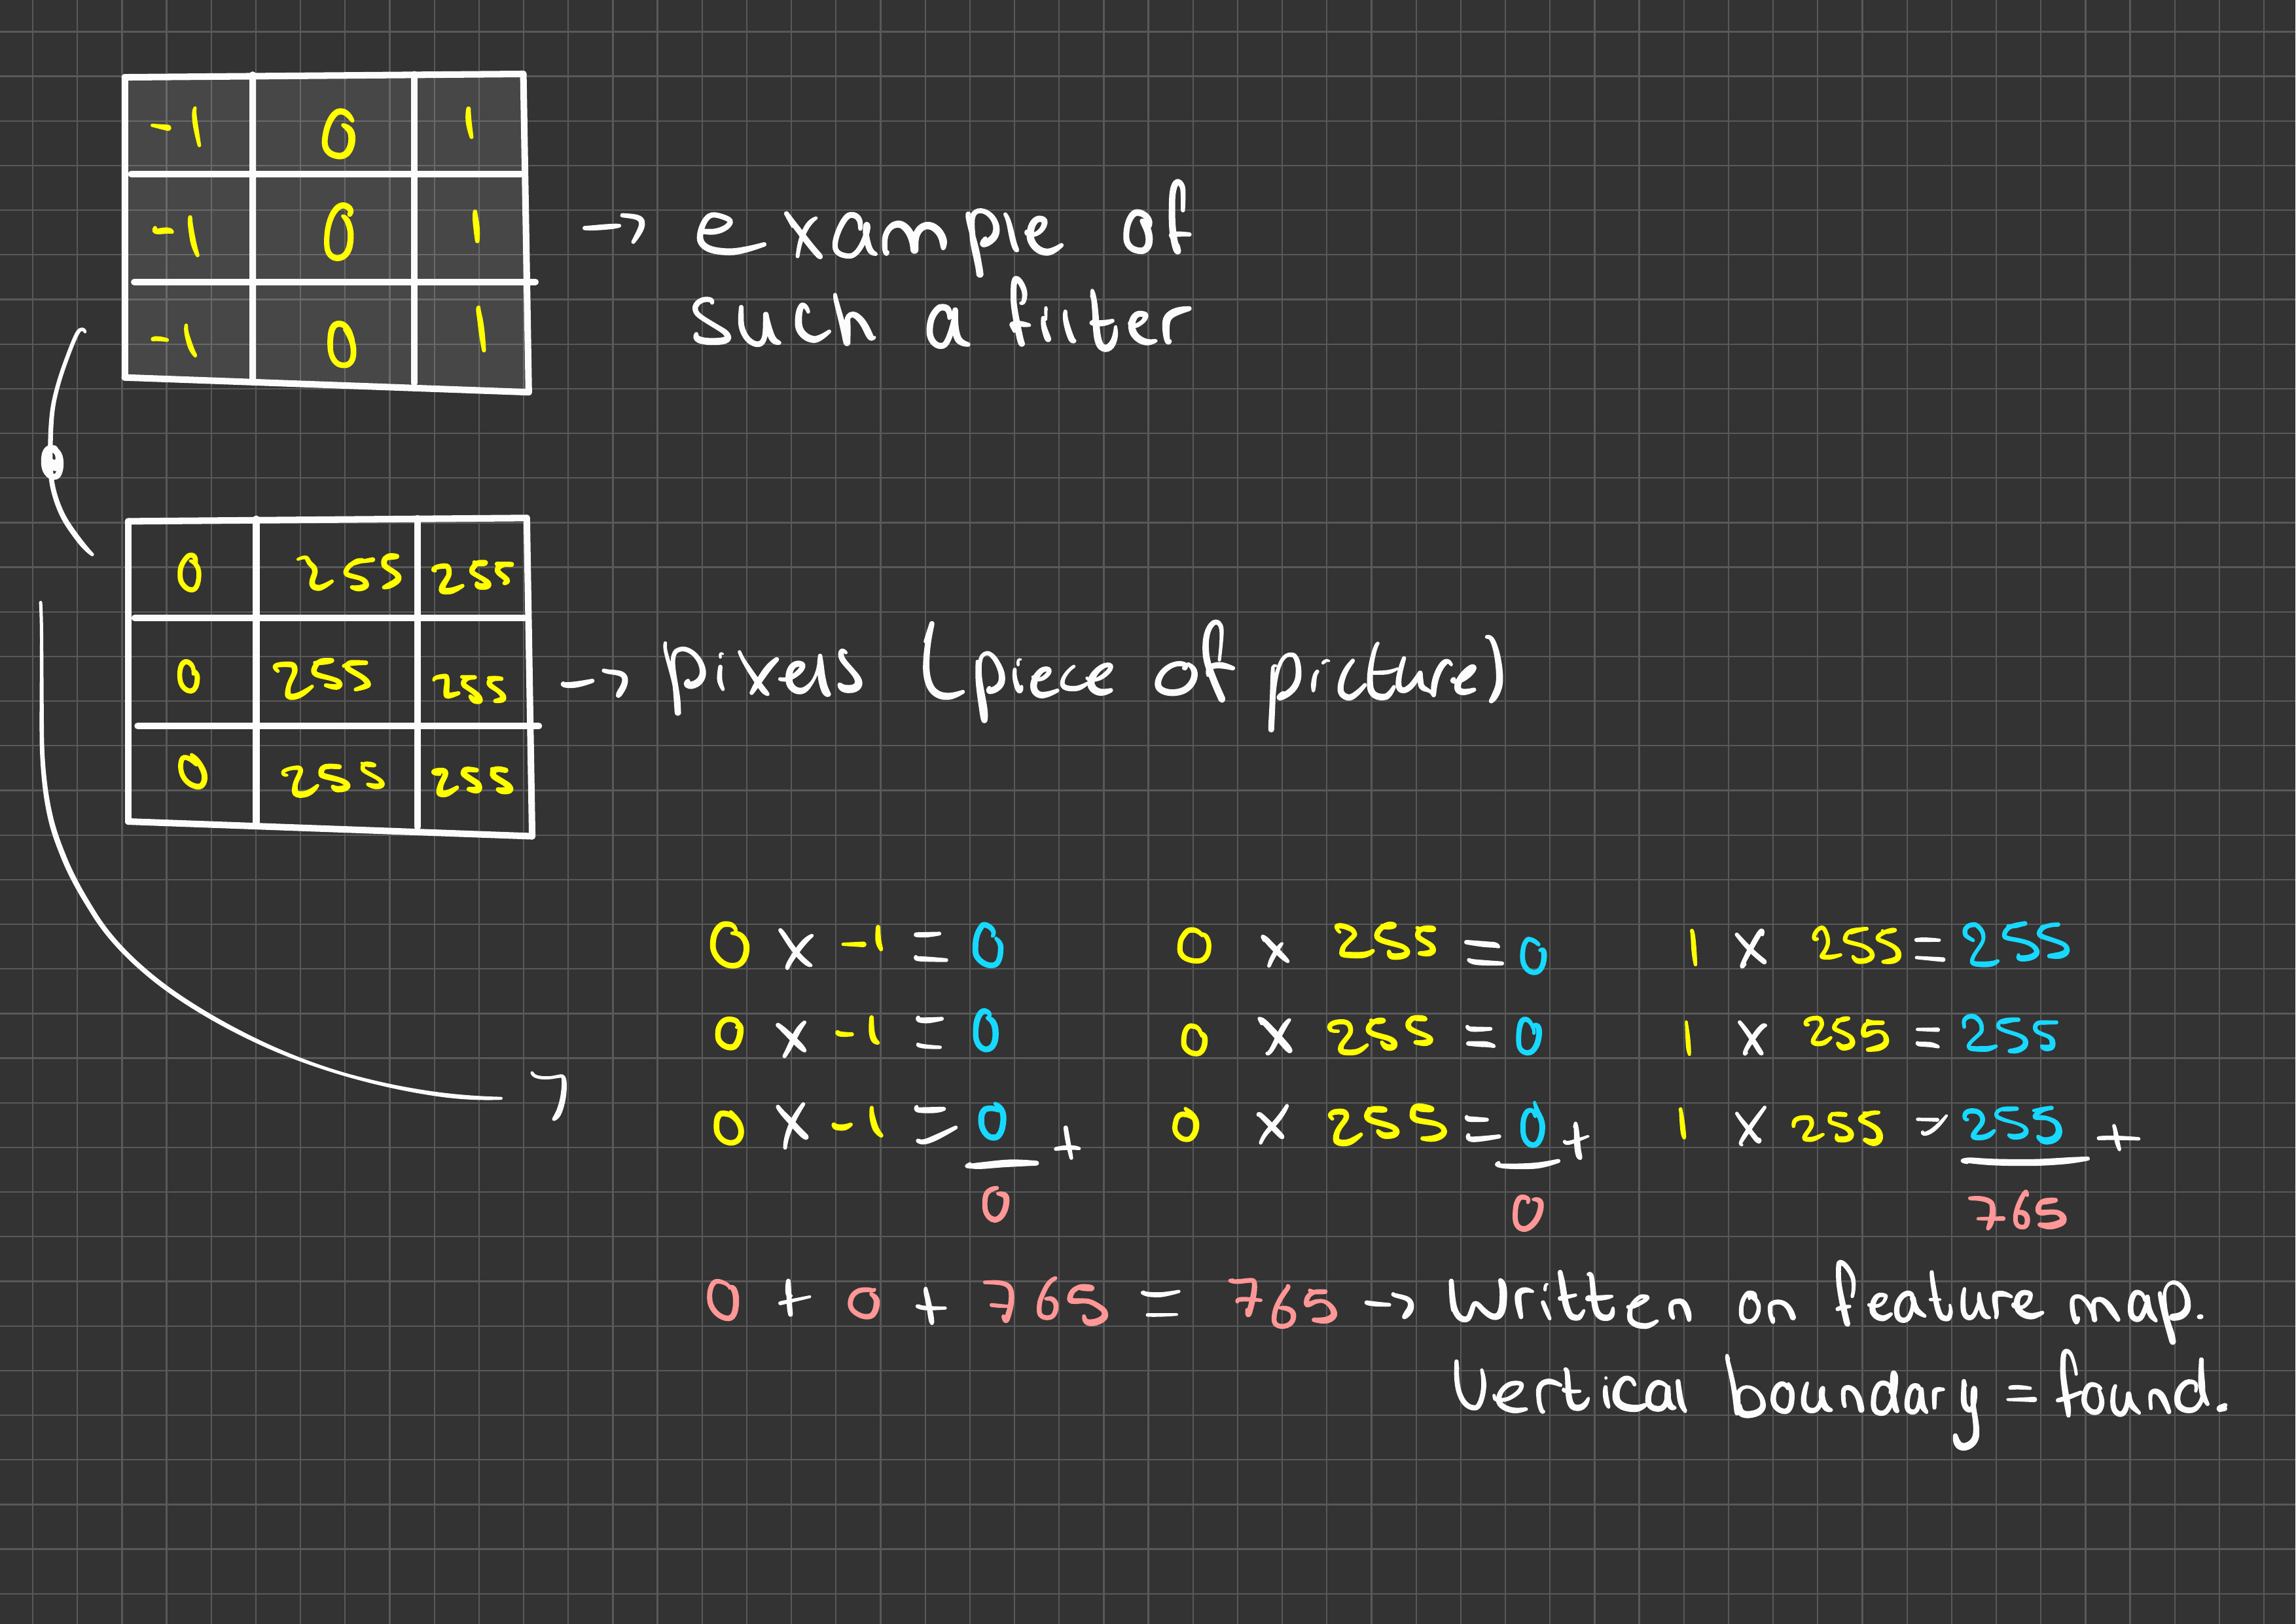 -1 0 1
-1 0 1
-1 0 1
→ example of
such a filter
0 255 255
0 255 255
0 255 255
→ pixels (piece of picture)
0 x -1 = 0 0 x 255 = 0 1 x 255 = 255
0 x -1 = 0 0 x 255 = 0 1 x 255 = 255
0 x -1 = 0 + 0 x 255 = 0 + 1 x 255 = 255 +
0 0 765
0 + 0 + 765 = 765 → Written on feature map.
Vertical boundary = found.